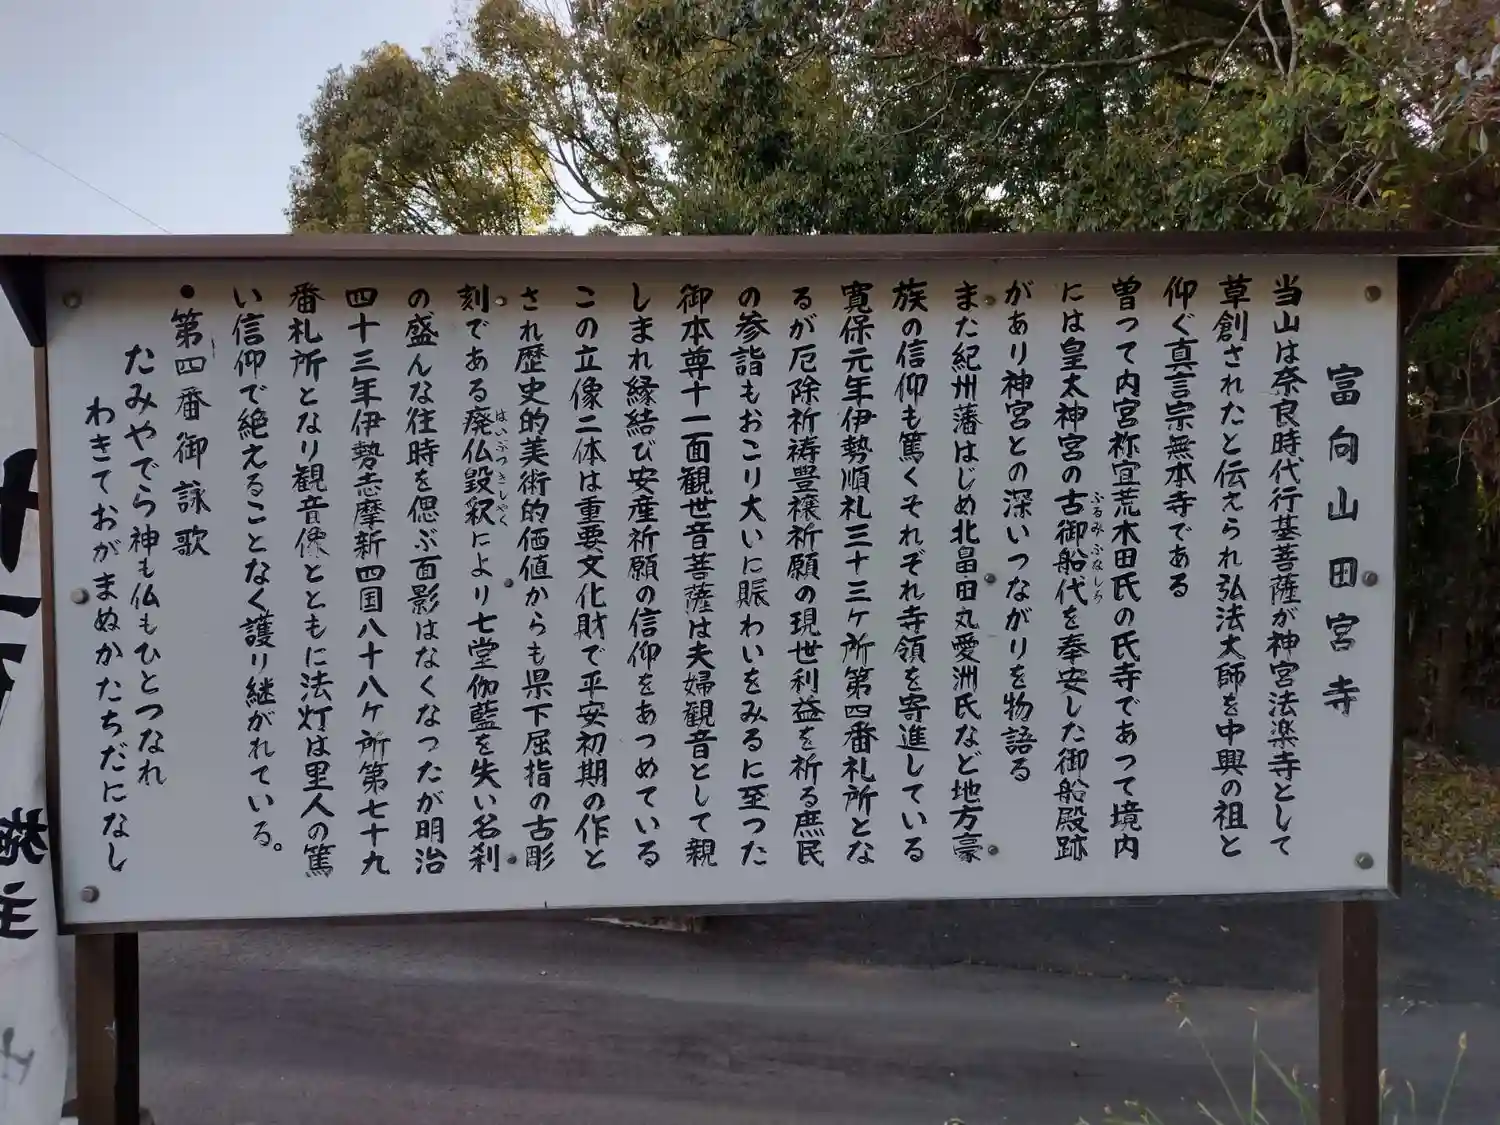 富向山田宮寺
当山は奈良時代行基菩薩が神宮法楽寺として
草創されたと伝えられ弘法大師を中興の祖と
仰ぐ真言宗無本寺である
曽つて内宮祢宜荒木田氏の氏寺であつて境内
には皇太神宮の古御船代を奉安した御船殿跡
ふるみふなしろ
があり神宮との深いつながりを物語る
また紀州藩はじめ北畠田丸愛洲氏など地方豪
族の信仰も篤くそれぞれ寺領を寄進している
寛保元年伊勢順礼三十三ヶ所第四番札所とな
るが厄除祈祷豊穣祈願の現世利益を祈る庶民
の参詣もおこり大いに賑わいをみるに至った
御本尊十一面観世音菩薩は夫婦観音として親
しまれ縁結び安産祈願の信仰をあつめている
この立像二体は重要文化財で平安初期の作と
され歴史的美術的価値からも県下屈指の古彫
刻である廃仏毀釈により七堂伽藍を失い名刹
はいぶつきしやく
の盛んな往時を偲ぶ面影はなくなつたが明治
四十三年伊勢志摩新四国八十八ヶ所第七十九
番札所となり観音像とともに法灯は里人の篤
い信仰で絶えることなく護り継がれている。
●第四番御詠歌
たみやでら神も仏もひとつなれ
わきておがまぬかたちだになし
施主